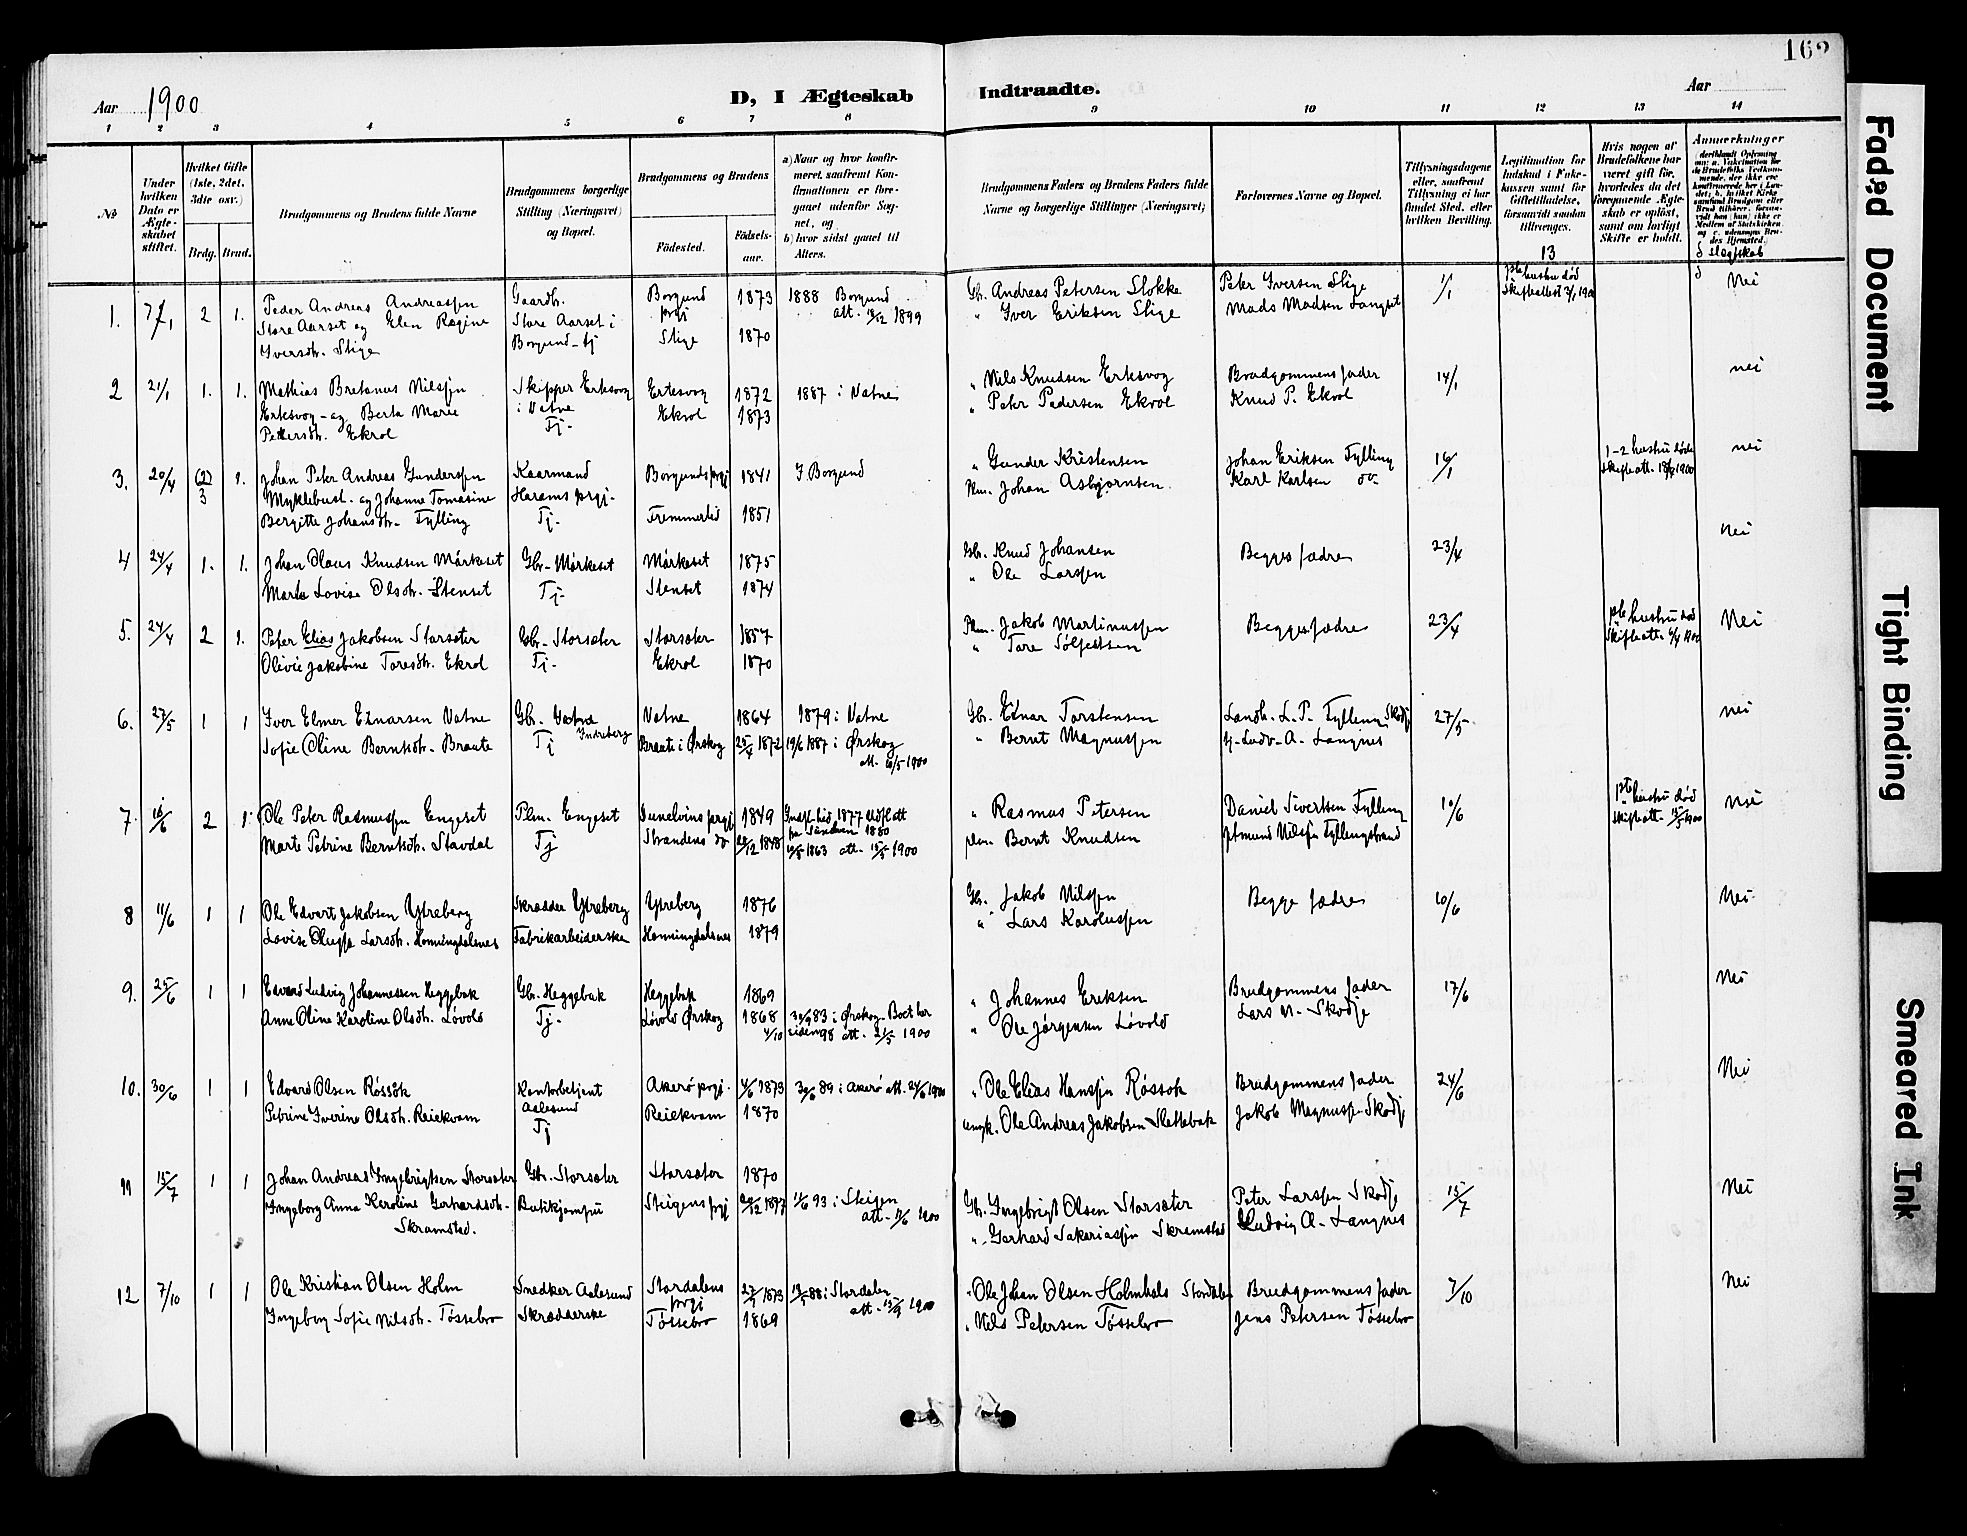 162
Aar 1900
D, I Ægteskab Indtraadte.
Aar
1 2 3 4 5 6 7 8 9 10 11 12 13 14
No
Under hvilken Dato er Ægteskabet stiftet.
Hvilket Gifte (1ste, 2det, 3die osv.)
Brdg. Brud.
Brudgommens og Brudens fulde Navne
Brudgommens borgerlige Stilling (Næringsvei) og Bopæl.
Brudgommens og Brudens
Fødested.
Fødselsaar.
a) Naar og hvor konfirmeret, saafremt Konfirmationen er foregaaet udenfor Sognet, og
b) hvor sidst gaaet til Alters.
Brudgommens Faders og Brudens Faders fulde Navne og borgerlige Stillinger (Næringsvei)
Forlovernes Navne og Bopæl.
Tillysningsdagene eller, saafremt Tillysning ei har fundet Sted, efter hvilken Bevilling.
Legitimation for Indskud i Enkekassen samt for Giftetilladelse, forsaavidt saadan tiltrænges.
13
Hvis nogen af Brudefolkene har været gift før, hvorledes da det foregaaende Ægteskab er opløst, samt om lovligt Skifte er holdt.
Anmærkninger
Slegtskab
1. 7/1 2 1. Peder Andreas Andreassen Gaardb. Borgund 1873 1888 Borgund Gb. Andreas Petersen Slokke Peter Iversen Slige 1/1 hustru død Nei
Store Aarset og Elen Regine Store Aarset i prgj att. 1899 " Iver Eriksen Slige Mads Madsen Langset
Iversdr. Slige Borgund - tj Slige 1870
2 21/1 1. 1. Mathias Bretanus Nilssen Skipper Erksvog Erksvog 1872 1887 i Vatne " Nils Knudsen Erksvog Brudgommens fader 14/1 nei
Erksvog - og Berta Marie i Vatne Ekrol 1873 " Peter Pedersen Ekrol Knud P. Ekrol
Pettersdr. Ekrol Tj.
3. 20/4 (2) 3 1. Johan Peter Andreas Gundersen Kaarmand Borgunds prgj 1841 I Borgund " Gunder Kristensen Johan Eriksen Fylling 16/1 1-2 hustru døde nei
Myklebust. og Johanne Tomasine Harams prgj. Plm. Johan Asbjørnsen Karl Karlsen do. Skifteatt. 1900
Bergitte Johansdr. Fylling Tj. Tremmerlid 1851
4 24/4 1. 1. Johan Olaus Knudsen Mørkeset Gbr. Mørkeset Mørkeset 1875 Gbr. Knud Johansen Begges fædre 23/4 nei
Marte Lovise Olsdr. Stenset Tj. Stenset 1874 " Ole Larssen
5. 24/4 2 1. Peter Elias Jakobsen Storsæter Gb. Storsæter Storsæter 1857 Plm. Jakob Martinussen Begges fædre 23/4 hustru død Nei
Olivie Jakobine Toresdr. Ekrol Tj. Ekrol 1870 " Tore Sølfestsen Skifteatt. 1900
6. 27/5 1 1 Iver Elmer Einarsen Vatne Gbr. Vatne Vatne 1864 1879 i Vatne Gb. Einar Torstensen Landh. L. P. Fylling Skodj 27/5 nei
Sofie Oline Berntsdr. Braute Tj Indreberg Braute i Ørskog 25/4 1872 19/6 1887 i Ørskog " Bernt Magnussen tj. Ludv. A. Langnes
att. 1900
7. 16/6 2 1. Ole Peter Rasmussen Engeset Plm. Engeset Sunelvens prgj 1849 Indfl. hid 1877 Udfl att " Rasmus Petersen Daniel Sivertsen Fylling 10/6 hustru død Nei
Marte Petrine Berntsdr. Stavdal Tj Strandens do 1848 1863 att. 15/5 1900 plm. Bernt Knudsen Nilssen Fyllingstrand Skifteatt. 1900
8 11/6 1 1 Ole Edvart Jakobsen Ytreberg Skrædder Ytreberg Ytreberg 1876 Gb. Jakob Nilssen Begge fædre 10/6 Nei
Lovise Larsdr. Honningdalsnes Fabrikarbeiderske Honningdalsnes 1879 " Lars Karolussen
9. 25/6 1 1 Edvard Ludvig Johannessen Heggebak Gb. Heggebak Heggebak 1869 " Johannes Eriksen Brudgommens fader 17/6 Nei
Anne Oline Karoline Olsdr. Løvold Tj. Løvold Ørskog 1868 83 i Ørskog. Boet her " Ole Jørgensen Løvold Lars M. Skodje
4/10 siden 98 att. 21/5 1900
10. 30/6 1 1 Edvard Olsen Røssok Kontorbetjent Akerø prgj. 1873 89 i Akerø att. 1900 " Ole Elias Hanssen Røssok Brudgommens fader 24/6 Nei
Petrine Iverine Olsdr. Reiekvam Aalesund Reiekvam 1870 Ole Andreas Jakobsen Slettebak Jakob Magnussen Skodje
Tj
11 15/7 1 1 Johan Andreas Ingebrigtsen Storsæter Gb. Storsæter Storsæter 1870 Gb. Ingebrigt Olsen Storsæter Peter Larssen Skodje 15/7 Nei
Ingeborg Anna Karoline Gerhardsdr. Butikjomfru Steigens prgj 1877 11/6 93 i Steigen " Gerhard Sakariassen Skramstad Ludvig A. Langnes
Skramsted. att. 1900
12 7/10 1 1 Ole Kristian Olsen Holm Snedker Aalesund Stordalens prgj 1873 88 i Stordalen " Ole Johan Olsen Holmhals Stordalen Brudgommens fader 7/10 Nei
Ingeborg Sofie Nilsdr. Tøssebro Skrædderske Tøssebro 1869 att. 1900 " Nils Petersen Tøssebro Jens Petersen Tøssebro
Faded Document
Tight Binding
Smeared Ink